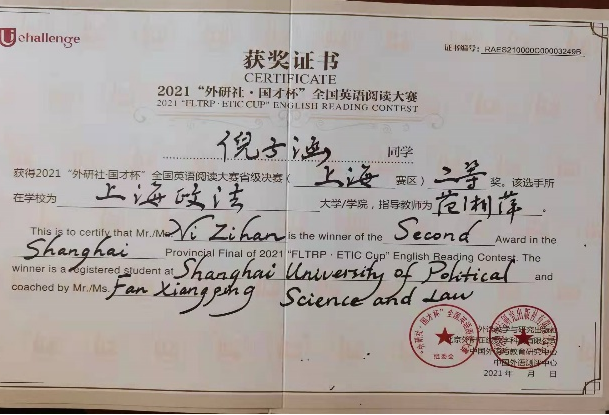 Uchallenge
证书编号：RAES210000C00003249B
获奖证书
CERTIFICATE
2021 “外研社·国才杯”全国英语阅读大赛
2021 "FLTRP·ETIC CUP" ENGLISH READING CONTEST
倪子涵 同学
获得2021 “外研社·国才杯”全国英语阅读大赛省级决赛（上海 赛区）二等 奖。该选手所
在学校为 上海政法 大学/学院，指导教师为 范湘萍 。
This is to certify that Mr./Ms. Ni Zihan is the winner of the Second Award in the
Shanghai Provincial Final of 2021 "FLTRP·ETIC Cup" English Reading Contest. The
winner is a registered student at Shanghai University of Political and
coached by Mr./Ms. Fan Xiangping Science and Law
外语教学与研究出版社
中国外语与教育研究中心
中国外语测评中心
2021年 月 日